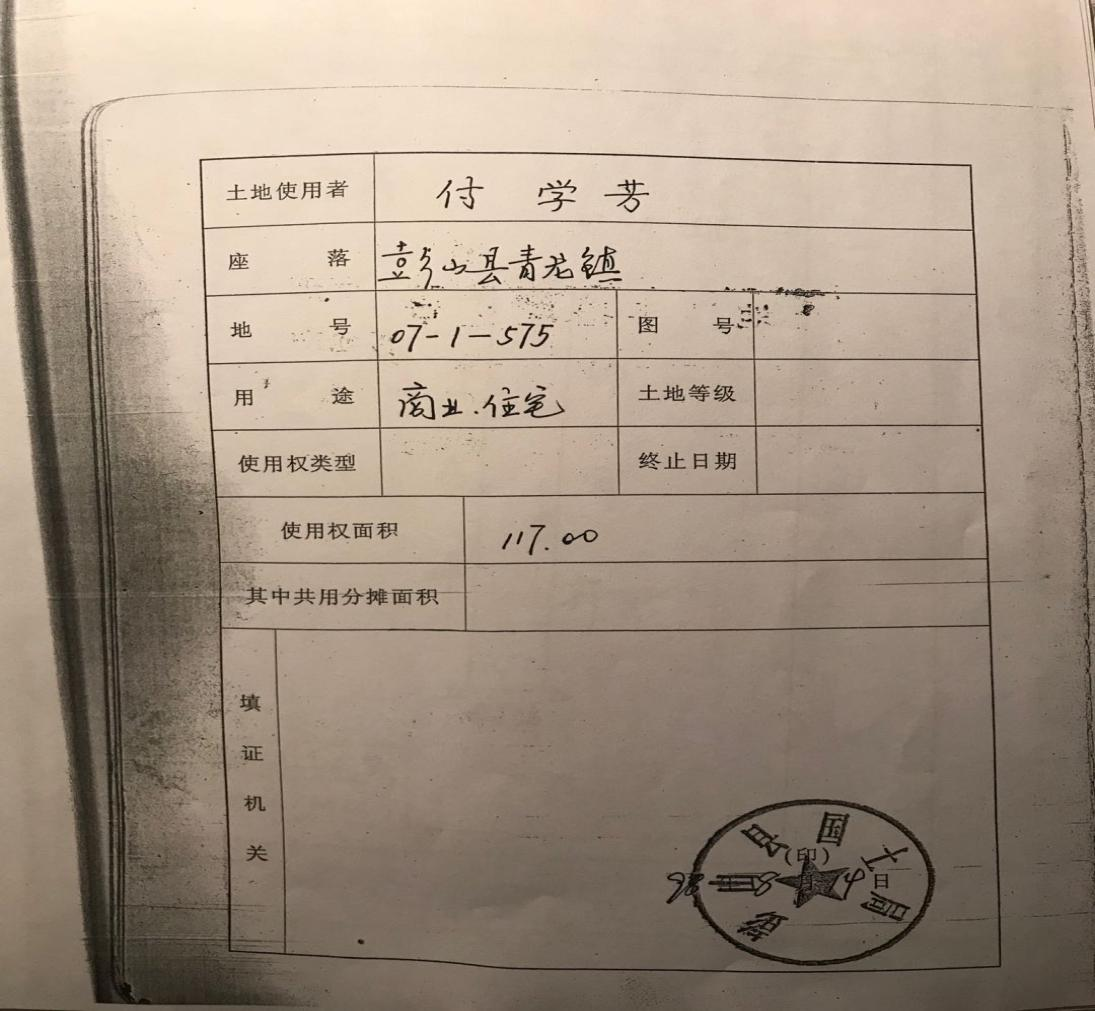 土地使用者 付学芳
座落 彭山县青龙镇
地号 07-1-575 图号
用途 商业.住宅 土地等级
使用权类型 终止日期
使用权面积 117.00
其中共用分摊面积
填证机关
国土局
(印)
98年8月 日